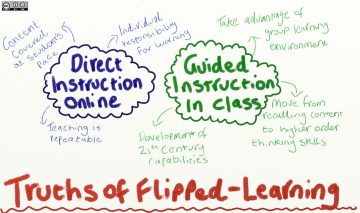 Individual
responsibility
for learning
Content
covered
at students
pace
Direct
Instruction
Online
Teaching is
repeatable
Take advantage of
group learning
environment
Guided
Instruction
In class
Development of
21st Century
capabilities
Move from
recalling content
to higher order
thinking skills
Truths of Flipped-Learning